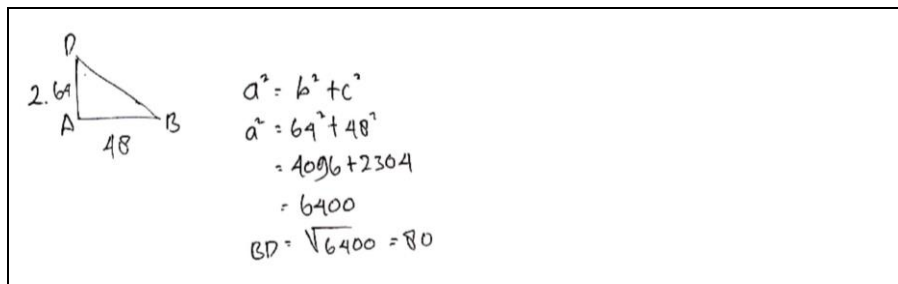 D
2. 64
A
B
48
a² = b² + c²
a² = 64² + 48²
= 4096 + 2304
= 6400
BD = √6400 = 80